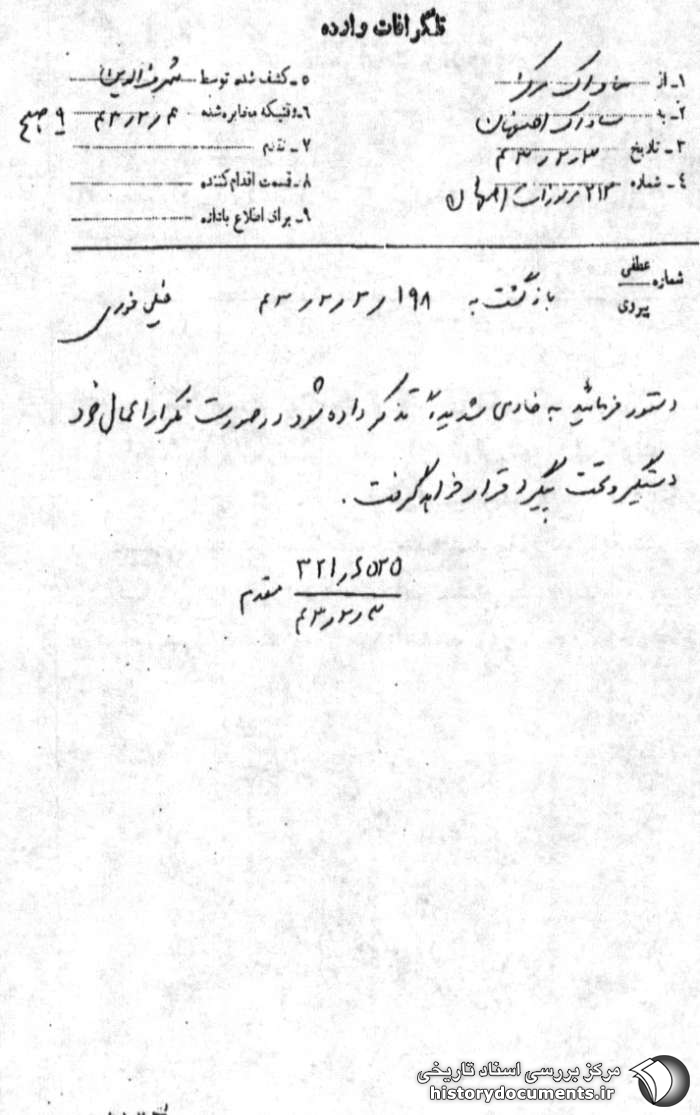 تلگرافات وارده
۱ـ از ساواک مرکز
۲ـ به ساواک اصفهان
۳ـ تاریخ ۴۳٫۲٫۳
۴ـ شماره ۲۱۲ اصفهان
۵ـ کشف شده توسط شرف‌الدین
۶ـ وقتیکه مخابره شده ۴۳٫۲٫۴ ۹ صبح
۷ـ تقدم
۸ـ قسمت اقدام کننده
۹ـ برای اطلاع باداره
شماره عطفی
پیروی
بازگشت به ۱۹۸ ـ ۴۳٫۲٫۳ خیلی فوری
دستور فرمائید به خادمی شدیداً تذکر داده شود در صورت تکرار اعمال خود
دستگیر و تحت پیگرد قرار خواهد گرفت.
۳۲۱
۴۳٫۲٫۳
مقدم
مرکز بررسی اسناد تاریخی
historydocuments.ir